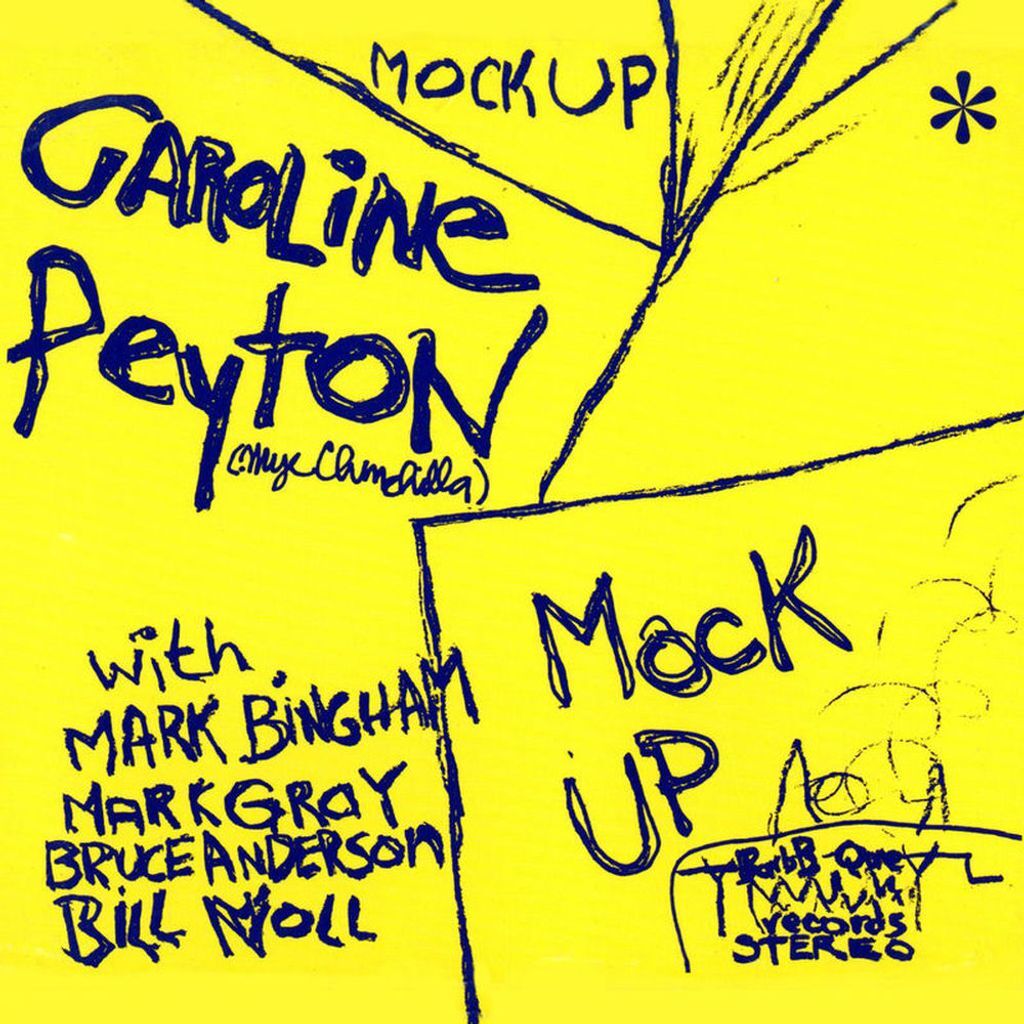 MOCK UP
CAROLINE
PEYTON
with
MARK BINGHAM
MARK GRAY
BRUCE ANDERSON
BILL NOLL
MOCK
UP
BarbB-Que
records
STEREO